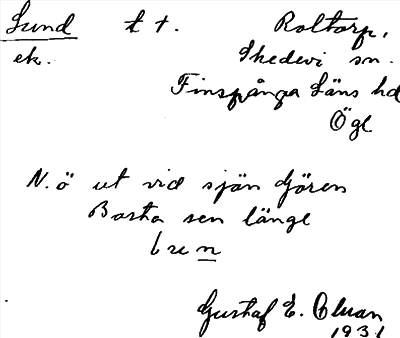 Lund t t. Roltorp,
ek. Skedevi sn.
Finspånga Läns hd
Ögl
N. ö ut vid sjön Gören
Borta sen länge
Gustaf E.
1931